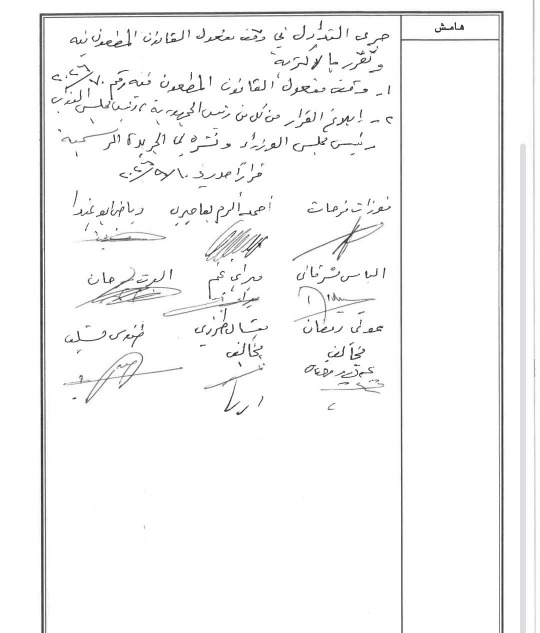 هامش
جرى التداول في وقف مفعول القانون المطعون فيه
وتقرر بالأكثرية
١- وقف مفعول القانون المطعون فيه رقم
٢- إبلاغ القرار من كل من رئيس الجمهورية، رئيس مجلس النواب
رئيس مجلس الوزراء ونشره في الجريدة الرسمية
قراراً صدر في
فوزات فرحات أحمد أكرم بعاصيري رياض أبو غيدا
الياس مشرقاني ميراي نجم البرت سرحان
عوني رمضان ميشال طرزي
مخالف مخالف